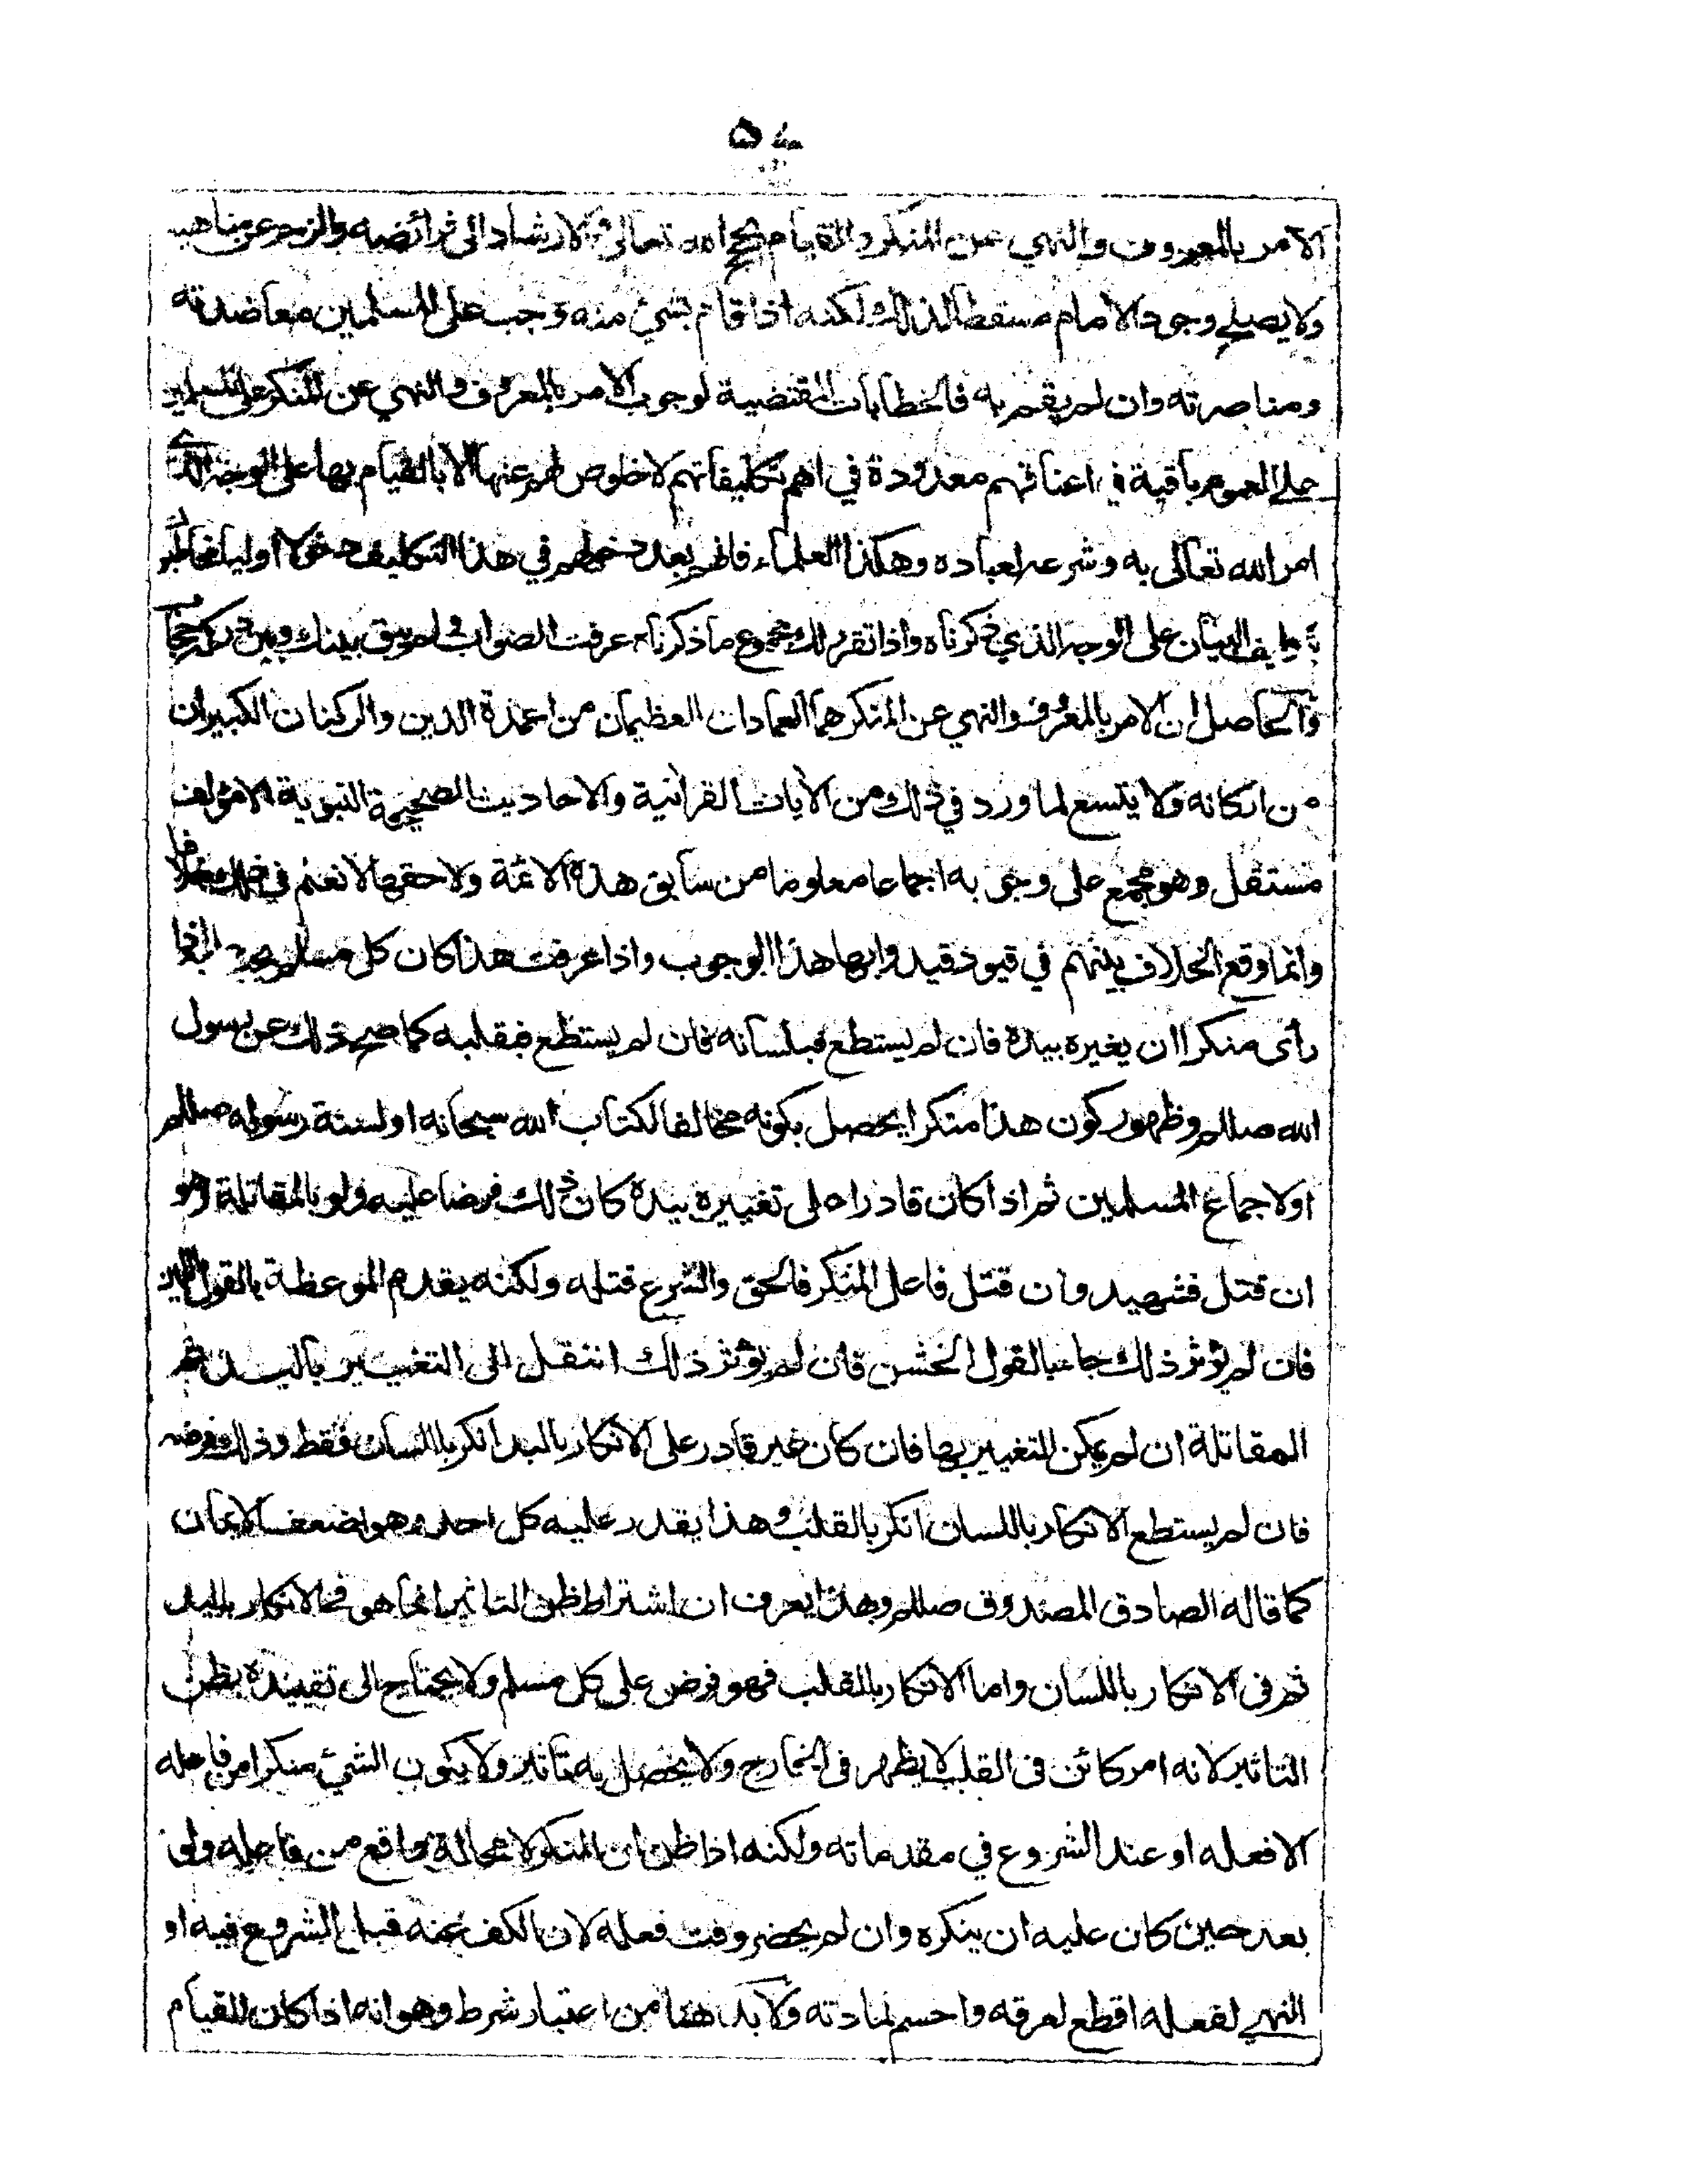 ٥٤
الامر بالمعروف والنهي عن المنكر والقيام بحجج الله تعالى والارشاد الى فرائضه والزجر عن مناهيه
ولا يصلح وجود الامام مسقطا لذلك لكنه اذا قام بشيء منه وجب على المسلمين معاضدته
ومناصرته وان لم يقم به فالخطابات المقتضية لوجوب الامر بالمعروف والنهي عن المنكر على المسلمين
على العموم باقية في اعناقهم معدودة في اهم تكليفاتهم لا خلوص لهم عنها الا بالقيام بها على الوجه الذي
امر الله تعالى به وشرعه لعباده وهكذا العلماء فانهم بعد دخولهم في هذا التكليف دخولا اوليا مخاطبون
بتكليف البيان على الوجه الذي ذكرناه واذا تقرر لك مجموع ما ذكرناه عرفت الصواب ولم يبق بينك وبين دركه حجاب
والحاصل ان الامر بالمعروف والنهي عن المنكر هما العمادان العظيمان من اعمدة الدين والركنان الكبيران
من اركانه ولا يتسع لما ورد في ذلك من الآيات القرآنية والاحاديث الصحيحة النبوية الا مؤلف
مستقل وهو مجمع على وجوبه اجماعا معلوما من سابق هذه الائمة ولاحقها لا نعلم في ذلك خلافا
وانما وقع الخلاف بينهم في قيود قيدوا بها هذا الوجوب واذا عرفت هذا كان كل مسلم يجب عليه اذا
رأى منكرا ان يغيره بيده فان لم يستطع فبلسانه فان لم يستطع فبقلبه كما صح ذلك عن رسول
الله صللم وظهور كون هذا منكرا يحصل بكونه مخالفا لكتاب الله سبحانه او لسنة رسوله صللم
او لاجماع المسلمين ثم اذا كان قادرا على تغييره بيده كان ذلك فرضا عليه ولو بالمقاتلة وهو
ان قتل فشهيد وان قتل فاعل المنكر فالحق والشرع قتله ولكنه يقدم الموعظة بالقول اللين
فان لم يؤثر ذلك جاء بالقول الخشن فان لم يؤثر ذلك انتقل الى التغيير باليد ثم
المقاتلة ان لم يمكن التغيير بها فان كان غير قادر على الانكار باليد انكر باللسان فقط وذلك فرضه
فان لم يستطع الانكار باللسان انكر بالقلب وهذا يقدر عليه كل احد وهو اضعف الايمان
كما قاله الصادق المصدوق صللم وبهذا يعرف ان اشتراط ظن التاثير انما هو في الانكار باليد
ثم في الانكار باللسان واما الانكار بالقلب فهو فرض على كل مسلم ولا يحتاج الى تقييده بظن
التاثير لانه امر كائن في القلب لا يظهر في الخارج ولا يحصل به تاثير ولا يكون الشيء منكرا من فاعله
الا فعله او عند الشروع في مقدماته ولكنه اذا ظن ان المنكر لا محالة واقع من فاعله ولو
بعد حين كان عليه ان ينكره وان لم يحضر وقت فعله لان الكف عنه قبل الشروع فيه او
النهي لفعله اقطع لعرقه واحسم لمادته ولا بد ههنا من اعتبار شرط وهو انه اذا كان للقيام